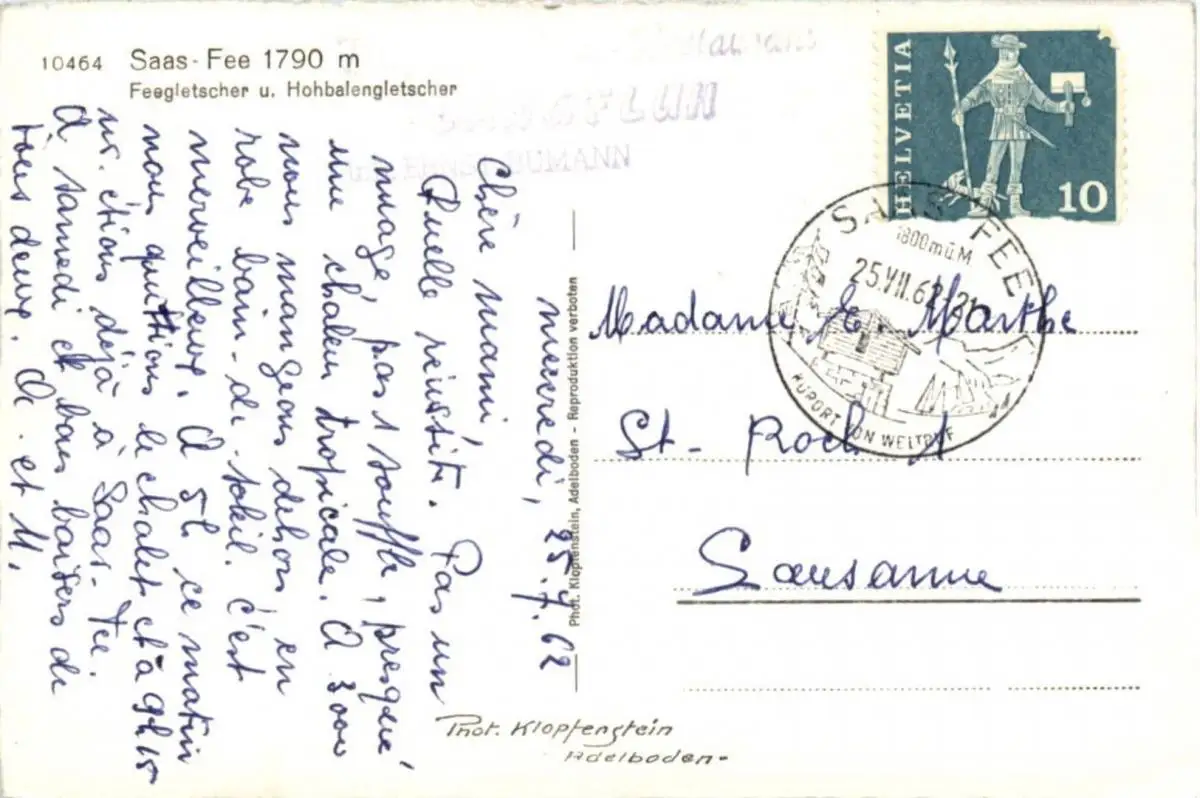 10464 Saas-Fee 1790 m
Feegletscher u. Hohbalengletscher
BUMANN
HELVETIA
10
SAAS-FEE
1800 m ü M
25.VII.62-21
KURORT VON WELTRUF
mercredi, 25.7.62
Chère mami,
Quelle réussite. Pas un
nuage, pas 1 souffle, presque
une chaleur tropicale. A 3000
nous mangeons dehors en
robe bain-de-soleil. C'est
merveilleux. A 5h ce matin
nous quittions le chalet et à 9h15
ns. étions déjà à Saas-Fee.
A samedi et bons baisers de
tous deux. Di. et M.
Phot. Klopfenstein, Adelboden - Reproduktion verboten
Madame E. Marthe
St-Roch 1
Lausanne
Phot. Klopfenstein
Adelboden-